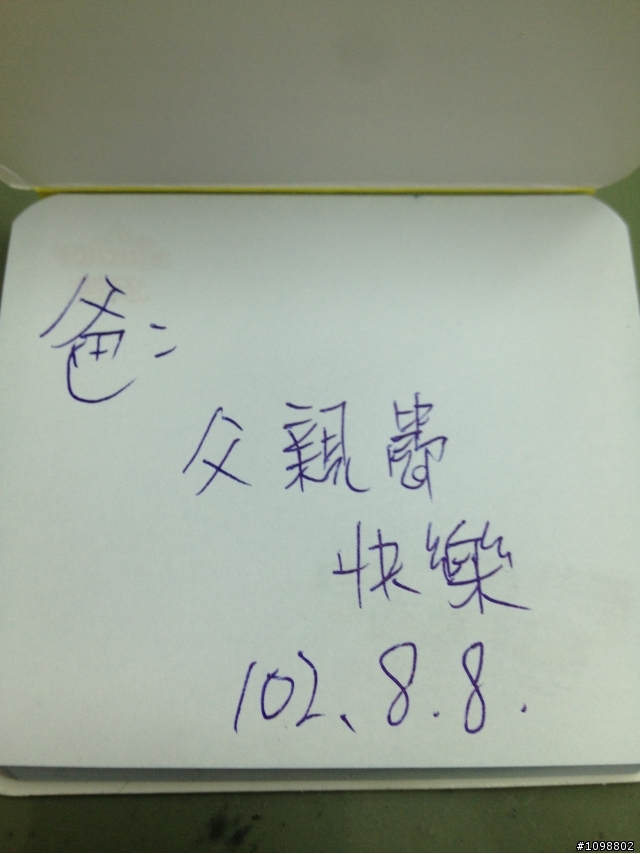 爸：
父親節
快樂
102、8.8.
#1098802